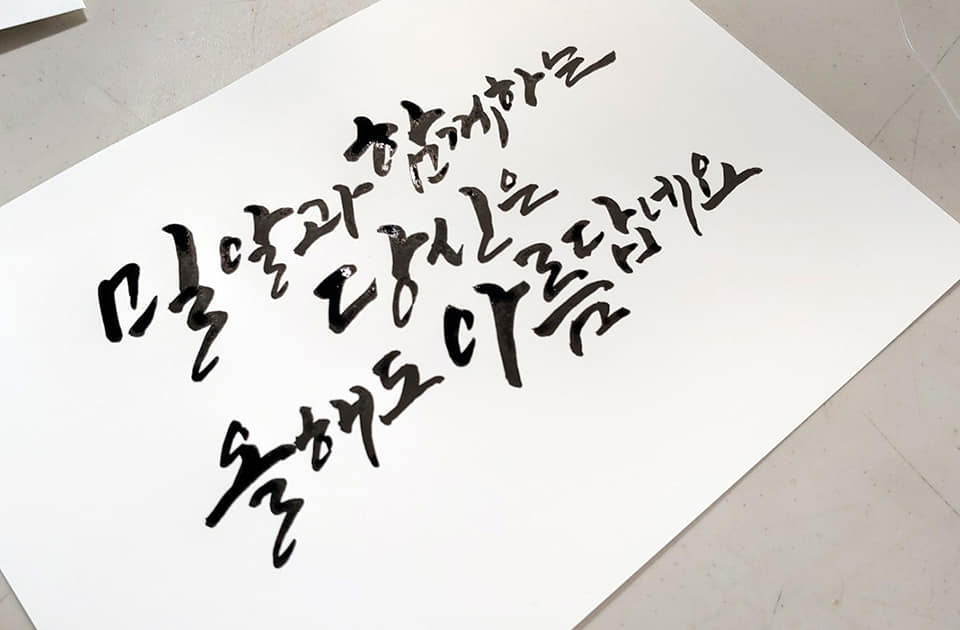 밀알과 함께하는
당신은
올해도 아름답네요